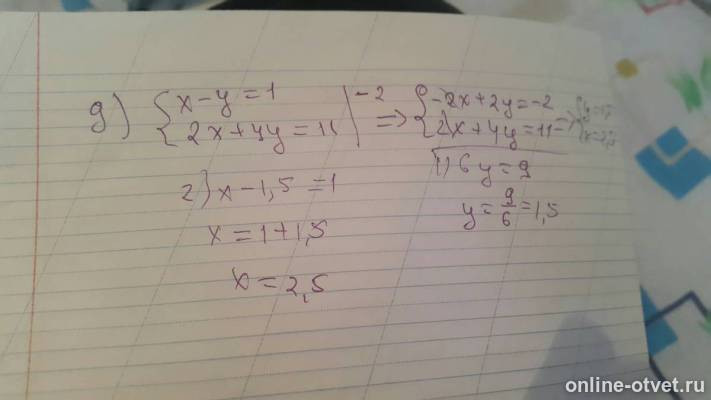 д) {x-y=1 |-2 => {-2x+2y=-2
{2x+4y=11 | {2x+4y=11
1) 6y=9
y=9/6=1,5
2) x-1,5=1
x=1+1,5
x=2,5
online-otvet.ru